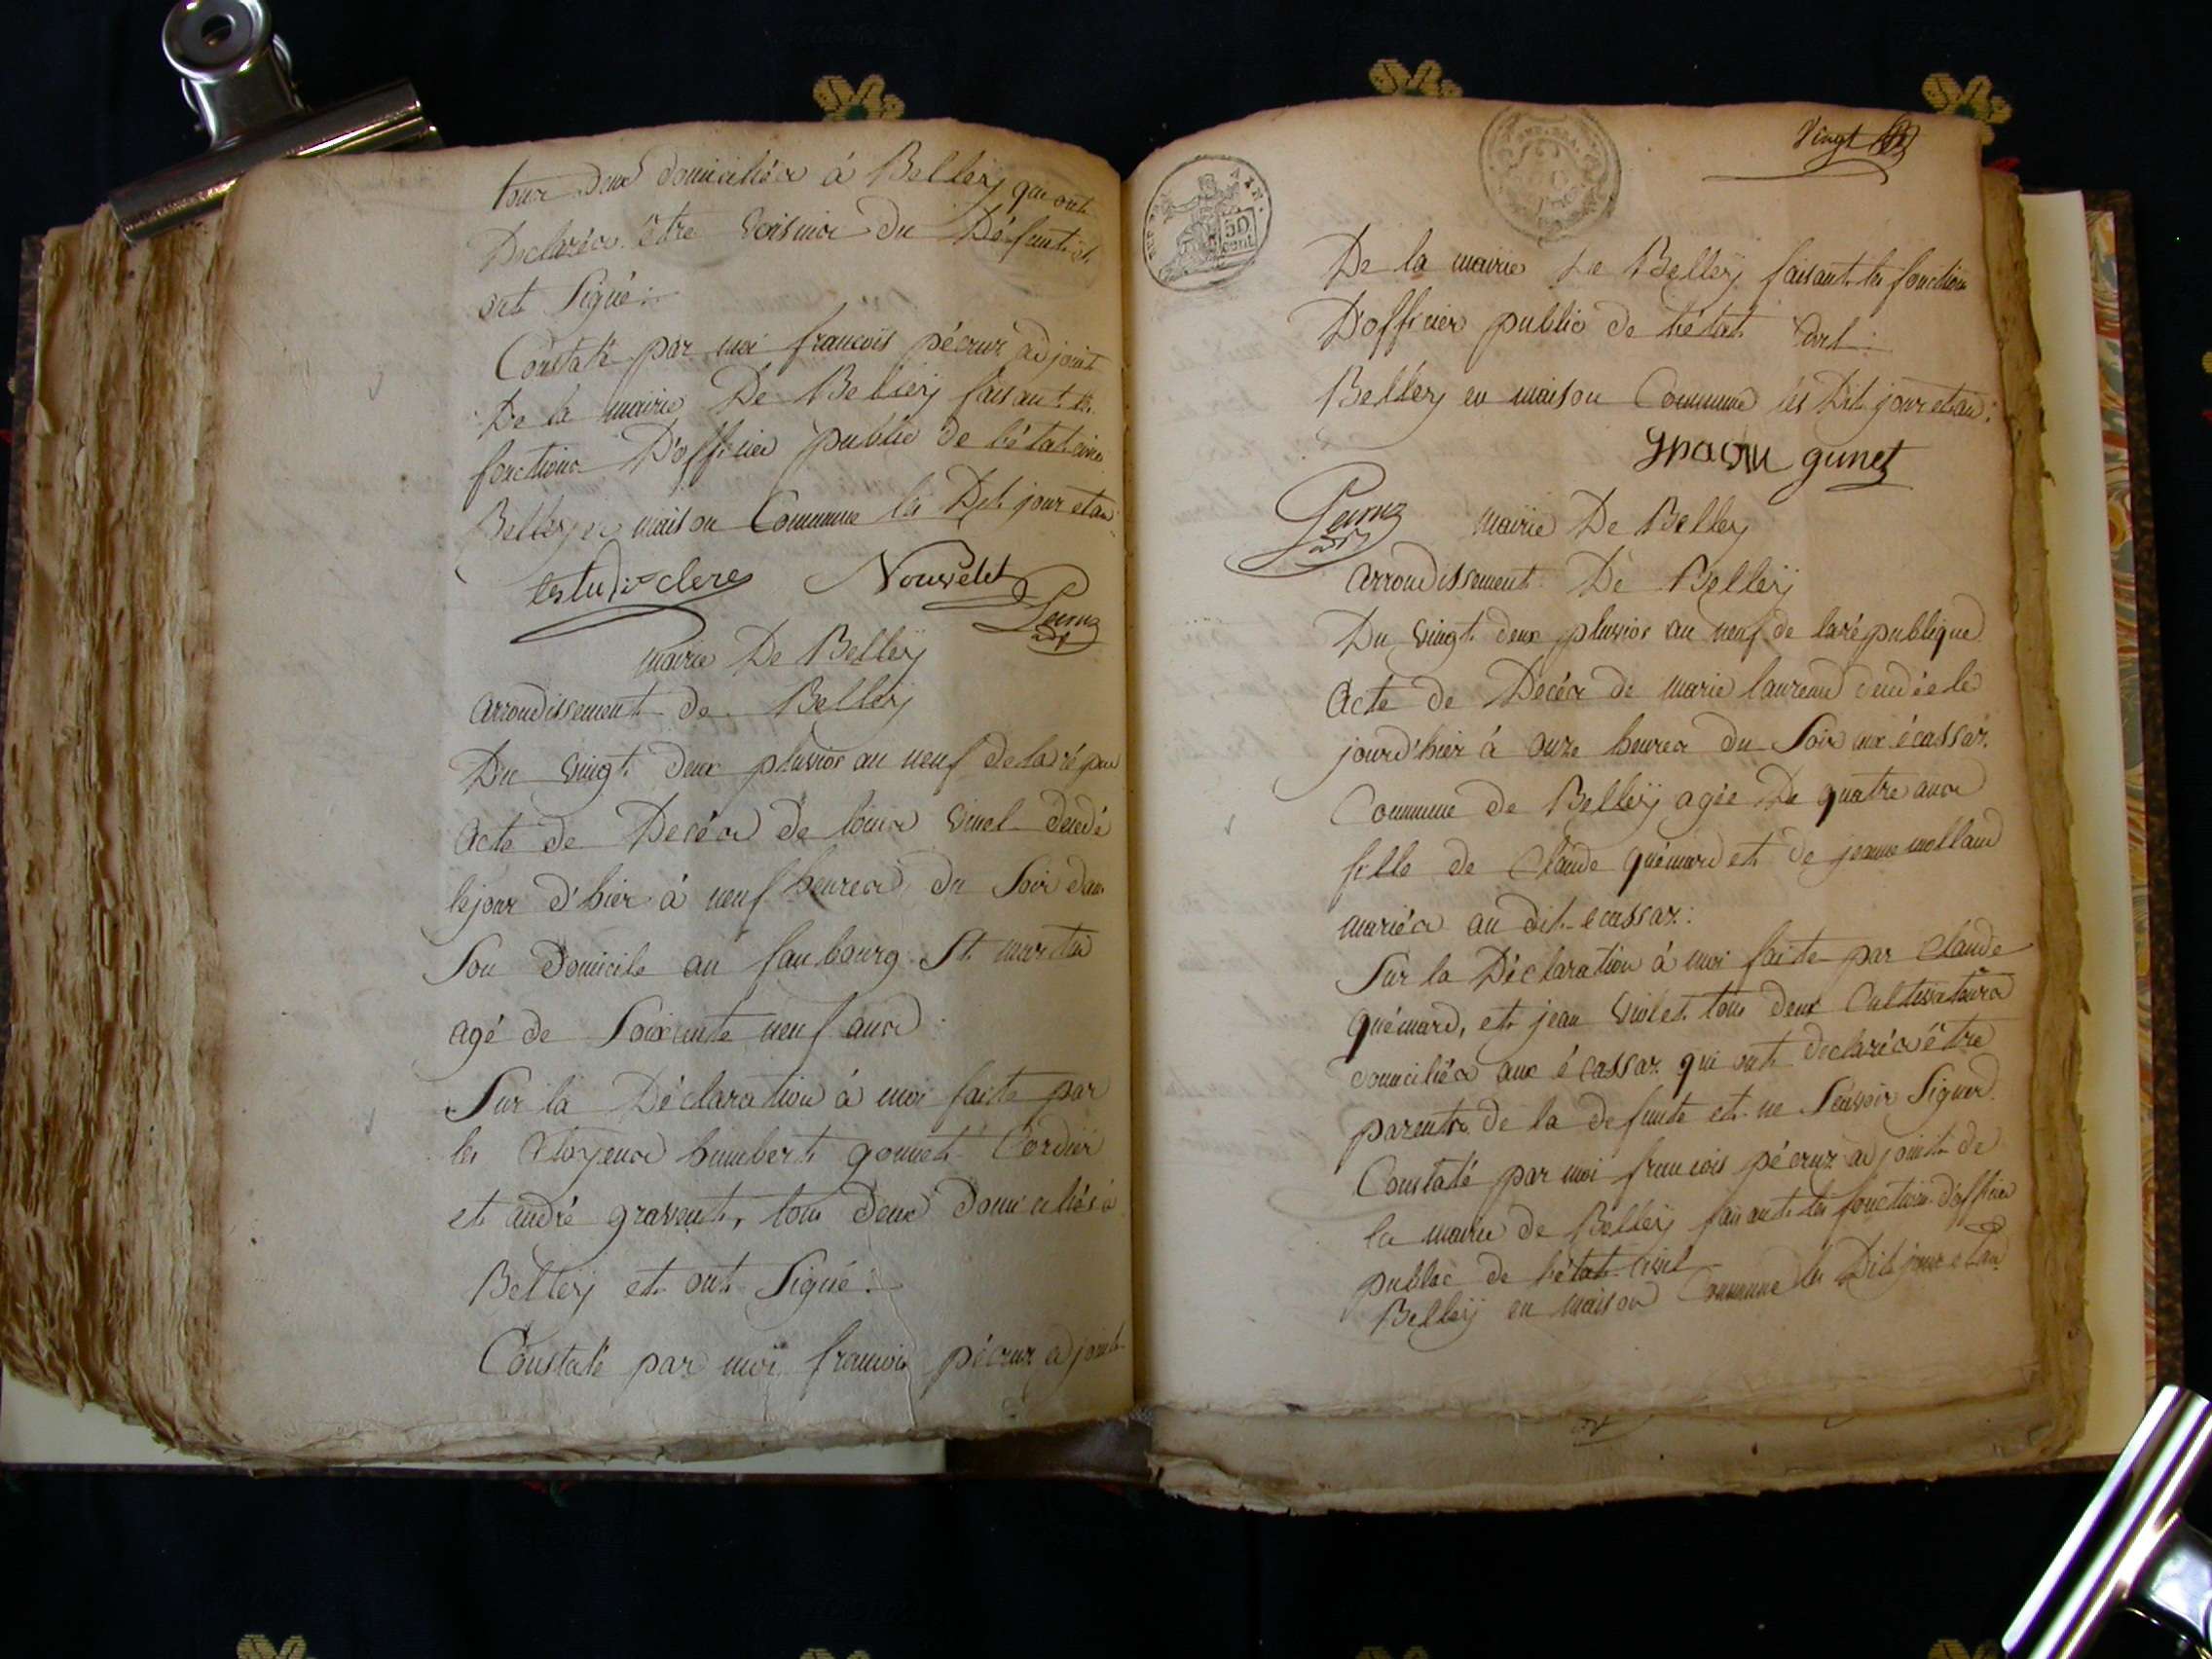 tous deux domiciliés à Belleÿ qui ont
Declarés être voisins du Défunt et
ont Signé :
Constaté par moi francois pécruz adjoint
De la mairie De Belleÿ faisant les
fonctions D'officier public de l'état civil
Belleÿ en maison Commune les Dit jour et an :
clerc Nouvelet
mairie De Belleÿ
arrondissement de Belleÿ
Du vingt deux pluvios an neuf de la répu
Acte de Decés de louis decedé
le jour d'hier à neuf heures du Soir dans
Son Domicile au faubourg St martin
agé de Soixante neuf ans
Sur la Déclaration à moi faite par
les Citoyens humbert gonnet Cordier
et andré gravent, tous deux domiciliés à
Belleÿ et ont Signé :
Constaté par moi francois pécruz adjoint
Vingt
REP. FRA. AIN.
50 cent
De la mairie De Belleÿ faisant les fonctions
D'officier public de l'état Civil :
Belleÿ en maison Commune les Dit jour et an :
mairie De Belleÿ
arrondissement De Belleÿ
Du vingt deux pluvios an neuf de la république
Acte de Decés de marie laurence decedée le
jour d'hier à onze heures du Soir aux écassaz
Commune de Belleÿ agée De quatre ans
fille de Claude quémard et de jeanne molland
mariés au dit écassaz :
Sur la Déclaration à moi faite par Claude
quémard, et jean violet tous deux Cultivateurs
domiciliés aux écassaz qui ont declarés être
parents de la defunte et ne Scavoir Signer
Constaté par moi francois pécruz adjoint de
la mairie de Belleÿ faisant les fonctions d'officier
public de l'état Civil
Belleÿ en maison Commune les Dit jour et an